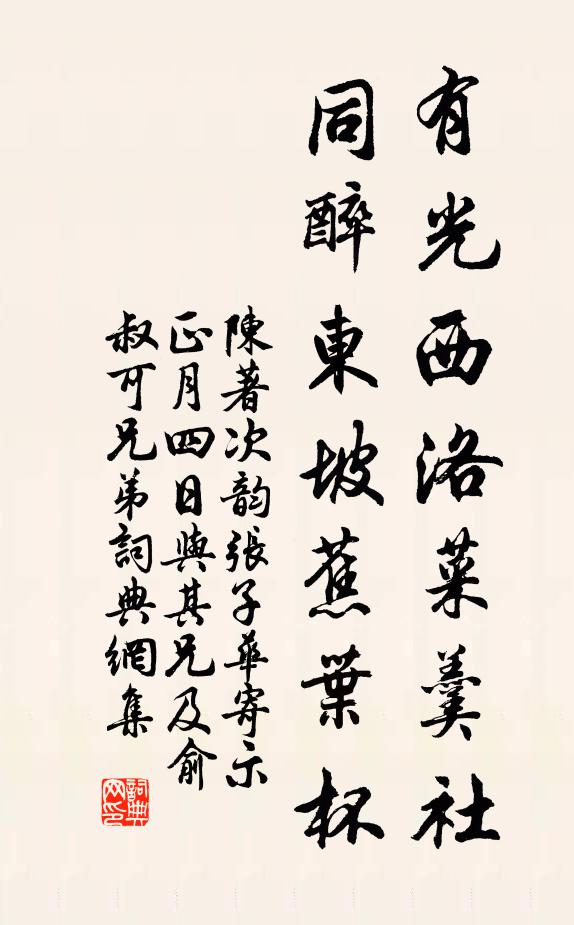 有光西洛菜羹社
同醉東坡蕉葉杯
陳著次韵張子華寄示
正月四日與其兄及俞
叔可兄弟詞典網集
詞典
网印